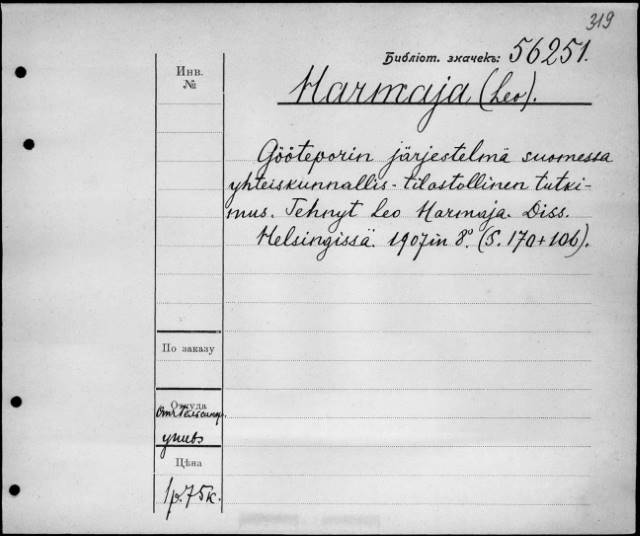 319
Библіот. значекъ: 56251.
Инв.
№
Harmaja (Leo).
Gööteporin järjestelmä suomessa
yhteiskunnallis-tilastollinen tutki-
mus. Tehnyt Leo Harmaja. Diss.
Helsingissä. 1907 in 8º. (S. 170+106).
По заказу
Откуда
Отъ Гельсингф.
унив
Цѣна
1р.75к.